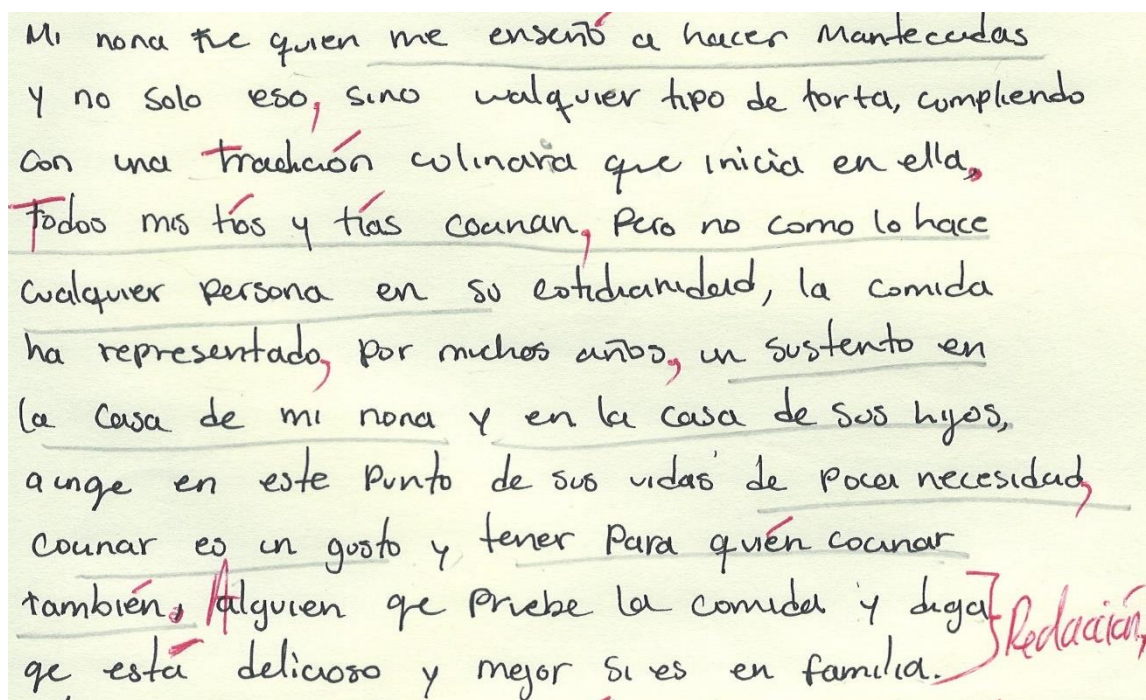 Mi nona fue quien me enseñó a hacer Mantecadas
y no solo eso, sino cualquier tipo de torta, cumpliendo
con una tradición culinaria que inicia en ella,
Todos mis tíos y tías cocinan, Pero no como lo hace
cualquier persona en su cotidianidad, la comida
ha representado, por muchos años, un sustento en
la casa de mi nona y en la casa de sus hijos,
aunqe en este Punto de sus vidas de poca necesidad,
cocinar es un gusto y tener Para quién cocinar
también, Alguien qe pruebe la comida y diga
qe está delicioso y mejor si es en familia.
Redacción,